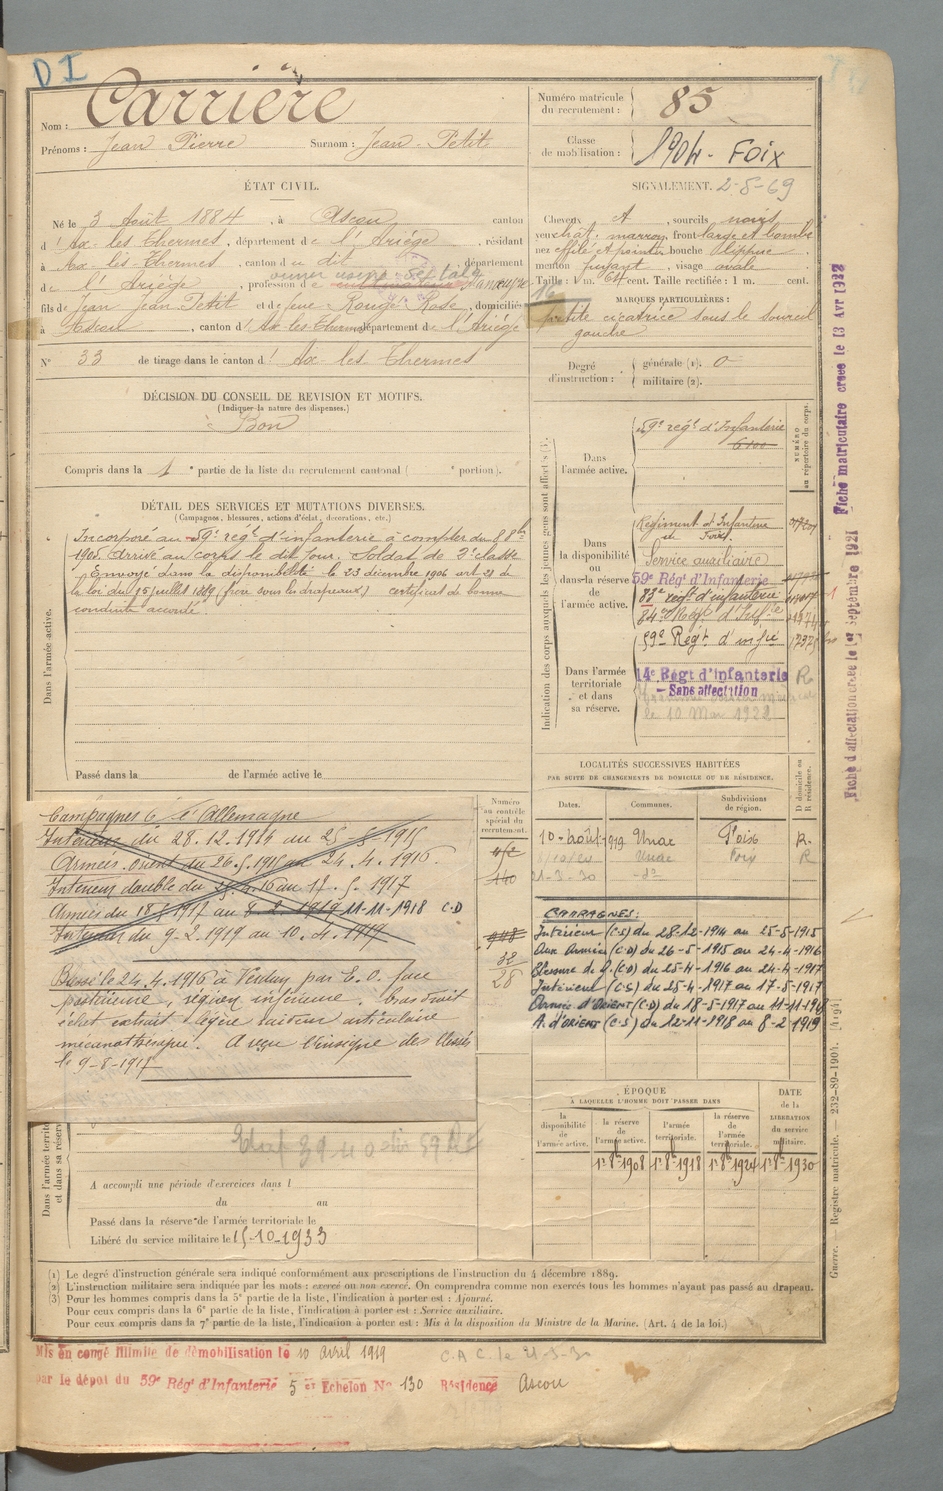 DI
Nom : Carrière
Prénoms : Jean Pierre Surnom : Jean-Petit
Numéro matricule du recrutement : 85
Classe de mobilisation : 1904 - Foix
ÉTAT CIVIL.
Né le 3 Août 1884, à Ascou canton
d'Ax-les-Thermes, département de l'Ariège, résidant
à Ax-les-Thermes, canton du dit département
de l'Ariège, profession de
fils de Jean Jean-Petit et de feue Rouge Rose, domiciliés
à Ascou, canton d'Ax-les-Thermes département de l'Ariège
N° 33 de tirage dans le canton d'Ax-les-Thermes
SIGNALEMENT. 2-8-69
Cheveux sourcils noirs
yeux chat. marron, front large et bombé
nez effilé et pointu bouche
menton fuyant, visage ovale
Taille : 1 m. 64 cent. Taille rectifiée : 1 m. cent.
MARQUES PARTICULIÈRES :
petite cicatrice sous le sourcil
gauche
Degré d'instruction : générale (1). 0
militaire (2).
DÉCISION DU CONSEIL DE REVISION ET MOTIFS.
(Indiquer la nature des dispenses.)
Bon
Compris dans la 1e partie de la liste du recrutement cantonal ( e portion).
DÉTAIL DES SERVICES ET MUTATIONS DIVERSES.
(Campagnes, blessures, actions d'éclat, décorations, etc.)
Dans l'armée active.
Incorporé au 59e régt d'infanterie à compter du 8 8bre
1905 arrivé au corps le dit jour. Soldat de 2e classe
Envoyé dans la disponibilité le 23 décembre 1906 art 21 de
la loi du 15 juillet 1889 (frère sous les drapeaux) certificat de bonne
conduite accordé.
Passé dans la de l'armée active le
Indication des corps auxquels les jeunes gens sont affectés (3).
NUMÉRO au répertoire du corps.
Dans l'armée active.
59e régt d'Infanterie
Dans la disponibilité ou dans la réserve de l'armée active.
Régiment d'Infanterie
de Foix.
Service auxiliaire
59e Régt d'Infanterie
83e régt d'infanterie
59e Régt d'infie
Dans l'armée territoriale et dans sa réserve.
14e Régt d'infanterie
- Sans affectation
le 10 Mai 1922
Fiche d'affectation créée le 1er Septembre 1921 Fiche matriculaire créée le 13 Avr 1922
Campagnes c/ l'Allemagne
Intérieur du 28.12.1914 au 25-5-1915
Armées Orient du 26.5.1915 au 24.4.1916.
Intérieur double du 25.4.16 au 17.5.1917
Armées du 18.5.1917 au 8-2-1919 11-11-1918 C-D
Intérieur du 9-2-1919 au 10.4.1919
Blessé le 24.4.1916 à Verdun par E.O. face
postérieure, région inférieure bras droit
éclat extrait légère raideur articulaire
mécanothérapie. A reçu l'insigne des blessés
le 9-8-1917
Numéro au contrôle spécial du recrutement.
32
28
LOCALITÉS SUCCESSIVES HABITÉES
PAR SUITE DE CHANGEMENTS DE DOMICILE OU DE RÉSIDENCE.
Dates. Communes. Subdivisions de région. D domicile ou R résidence.
10-Août-1919 Unac Foix R.
Unac Foix R
21-3-30 -d°-
CAMPAGNES:
Intérieur (C.S) du 28-12-1914 au 25-5-1915
Aux Armées (C.D) du 26-5-1915 au 24-4-1916
Blessure de G. (C.D) du 25-4-1916 au 24-4-1917
Intérieur (C-S) du 25-4-1917 au 17-5-1917
Armée d'ORIENT (C-D) du 18-5-1917 au 11-11-1918
A. d'ORIENT (C-S) du 12-11-1918 au 8-2-1919
ÉPOQUE
À LAQUELLE L'HOMME DOIT PASSER DANS
la disponibilité de l'armée active. la réserve de l'armée active. l'armée territoriale. la réserve de l'armée territoriale. DATE de la LIBÉRATION du service militaire.
1er 8bre 1908 1er 8bre 1918 1er 8bre 1924 1er 8bre 1930
Dans l'armée territoriale et dans sa réserve
A accompli une période d'exercices dans l
du au
Passé dans la réserve de l'armée territoriale le
Libéré du service militaire le 15-10-1933
(1) Le degré d'instruction générale sera indiqué conformément aux prescriptions de l'instruction du 4 décembre 1889.
(2) L'instruction militaire sera indiquée par les mots : exercé ou non exercé. On comprendra comme non exercés tous les hommes n'ayant pas passé au drapeau.
(3) Pour les hommes compris dans la 5e partie de la liste, l'indication à porter est : Ajourné.
Pour ceux compris dans la 6e partie de la liste, l'indication à porter est : Service auxiliaire.
Pour ceux compris dans la 7e partie de la liste, l'indication à porter est : Mis à la disposition du Ministre de la Marine. (Art. 4 de la loi.)
Guerre. — Registre matricule. — 232-89-1904. [4194]
Mis en congé illimité de démobilisation le 10 avril 1919
par le dépôt du 59e Régt d'Infanterie 5 er Echelon N° 130 Résidence Ascou
C.A.C. le 21-3-30